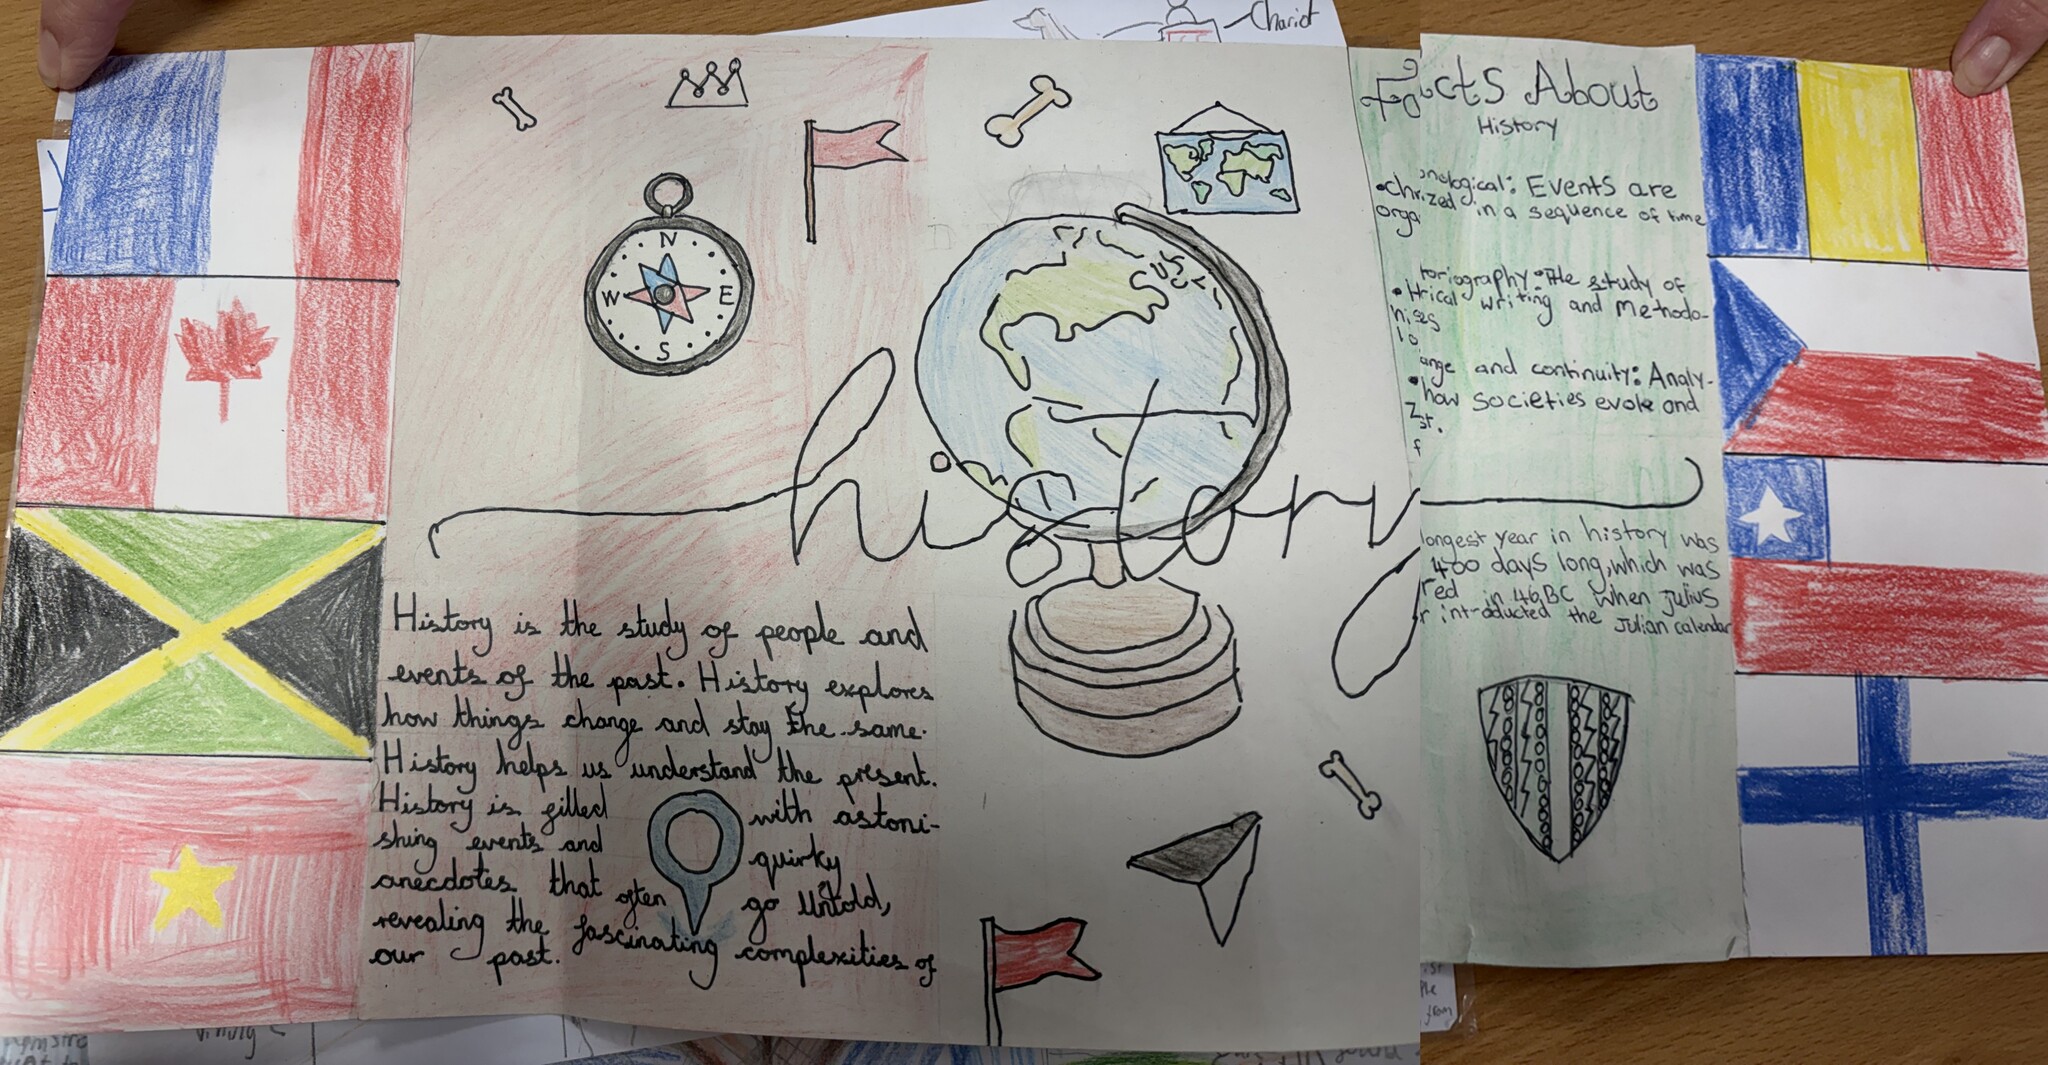 Chariot
Facts About
History
•chronological: Events are
organized in a sequence of time
toriography: The study of
trical writing and Methodo-
ange and continuity: Analy-
how societies evolve and
N
W E
S
history
History is the study of people and
events of the past. History explores
how things change and stay the same.
History helps us understand the present.
History is filled with astoni-
shing events and quirky
anecdotes that often go Untold,
revealing the fascinating complexities of
our past.
longest year in history was
400 days long, which was
red in 46BC when Julius
r introducted the Julian calendar